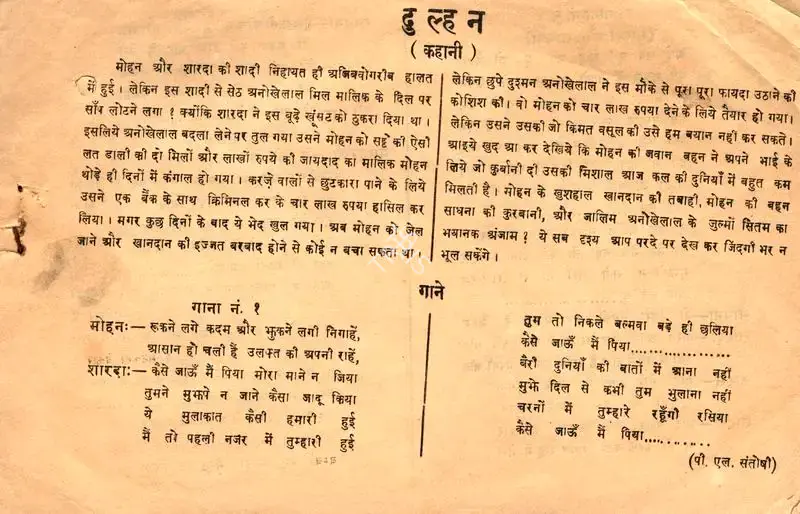 दुल्हन
( कहानी )
मोहन और शारदा की शादी निहायत ही अजिबोगरीब हालत
में हुई। लेकिन इस शादी से सेठ अनोखेलाल मिल मालिक के दिल पर
साँप लोटने लगा ? क्योंकि शारदा ने इस बूढ़े खूंसट को ठुकरा दिया था।
इसलिये अनोखेलाल बदला लेने पर तुल गया उसने मोहन को सट्टे की ऐसी
लत डाली की दो मिलों और लाखों रुपये की जायदाद का मालिक मोहन
थोड़े ही दिनों में कंगाल हो गया। करज़े वालों से छुटकारा पाने के लिये
उसने एक बैंक के साथ क्रिमिनल कर के चार लाख रुपया हासिल कर
लिया। मगर कुछ दिनों के बाद ये भेद खुल गया। अब मोहन को जेल
जाने और खानदान की इज्जत बरबाद होने से कोई न बचा सकता था।
लेकिन छुपे दुश्मन अनोखेलाल ने इस मौके से पूरा पूरा फायदा उठाने की
कोशिश की। वो मोहन को चार लाख रुपया देने के लिये तैयार हो गया।
लेकिन उसने उसकी जो किमत वसूल की उसे हम बयान नहीं कर सकते।
आइये खुद आ कर देखिये कि मोहन की जवान बहन ने अपने भाई के
लिये जो कुर्बानी दी उसकी मिशाल आज कल की दुनियाँ में बहुत कम
मिलती है। मोहन के खुशहाल खानदान की तबाही, मोहन की बहन
साधना की कुरबानी, और जालिम अनोखेलाल के जुल्मों सितम का
भयानक अंजाम ? ये सब दृश्य आप परदे पर देख कर जिंदगी भर न
भूल सकेंगे।
गाने
गाना नं. १
मोहनः— रूकने लगे कदम और झुकने लगी निगाहें,
आसान हो चली हैं उलफत की अपनी राहें,
शारदाः— कैसे जाऊँ मैं पिया मोरा माने न जिया
तुमने मुझपे न जाने कैसा जादू किया
ये मुलाकात कैसी हमारी हुई
मैं तो पहली नजर में तुम्हारी हुई
तुम तो निकले बलमवा बड़े ही छलिया
कैसे जाऊँ मैं पिया................
बैरी दुनियाँ की बातों में आना नहीं
मुझे दिल से कभी तुम भुलाना नहीं
चरनों में तुम्हारे रहूँगी रसिया
कैसे जाऊँ मैं पिया............
(पी. एल. संतोषी)